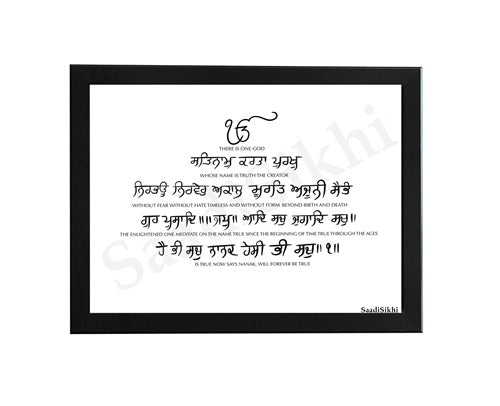 ੴ
THERE IS ONE GOD
ਸਤਿਨਾਮੁ ਕਰਤਾ ਪੁਰਖੁ
WHOSE NAME IS TRUTH THE CREATOR
ਨਿਰਭਉ ਨਿਰਵੈਰੁ ਅਕਾਲ ਮੂਰਤਿ ਅਜੂਨੀ ਸੈਭੰ
WITHOUT FEAR WITHOUT HATE TIMELESS AND WITHOUT FORM BEYOND BIRTH AND DEATH
ਗੁਰ ਪ੍ਰਸਾਦਿ॥॥ਜਪੁ॥ ਆਦਿ ਸਚੁ ਜੁਗਾਦਿ ਸਚੁ॥
THE ENLIGHTENED ONE MEDITATE ON THE NAME TRUE SINCE THE BEGINNING OF TIME TRUE THROUGH THE AGES
ਹੈ ਭੀ ਸਚੁ ਨਾਨਕ ਹੋਸੀ ਭੀ ਸਚੁ॥੧॥
IS TRUE NOW SAYS NANAK, WILL FOREVER BE TRUE
SaadiSikhi
SaadiSikhi